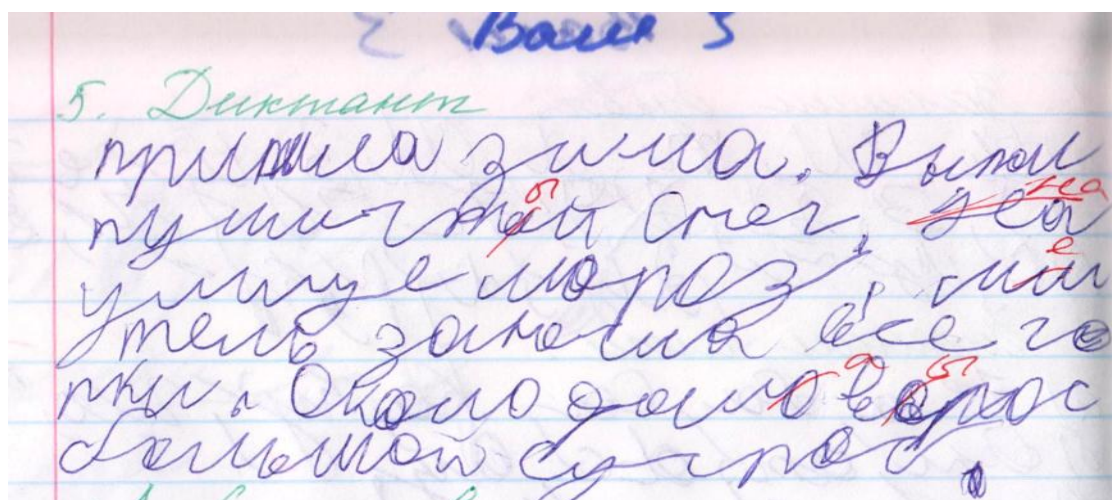 Ваня З
5. Диктант
пришла зима. Выпал
пушистой снег, на
улице мороз, ми
тель занесла все то
пки. Около дамо вырос
большой сугроб.